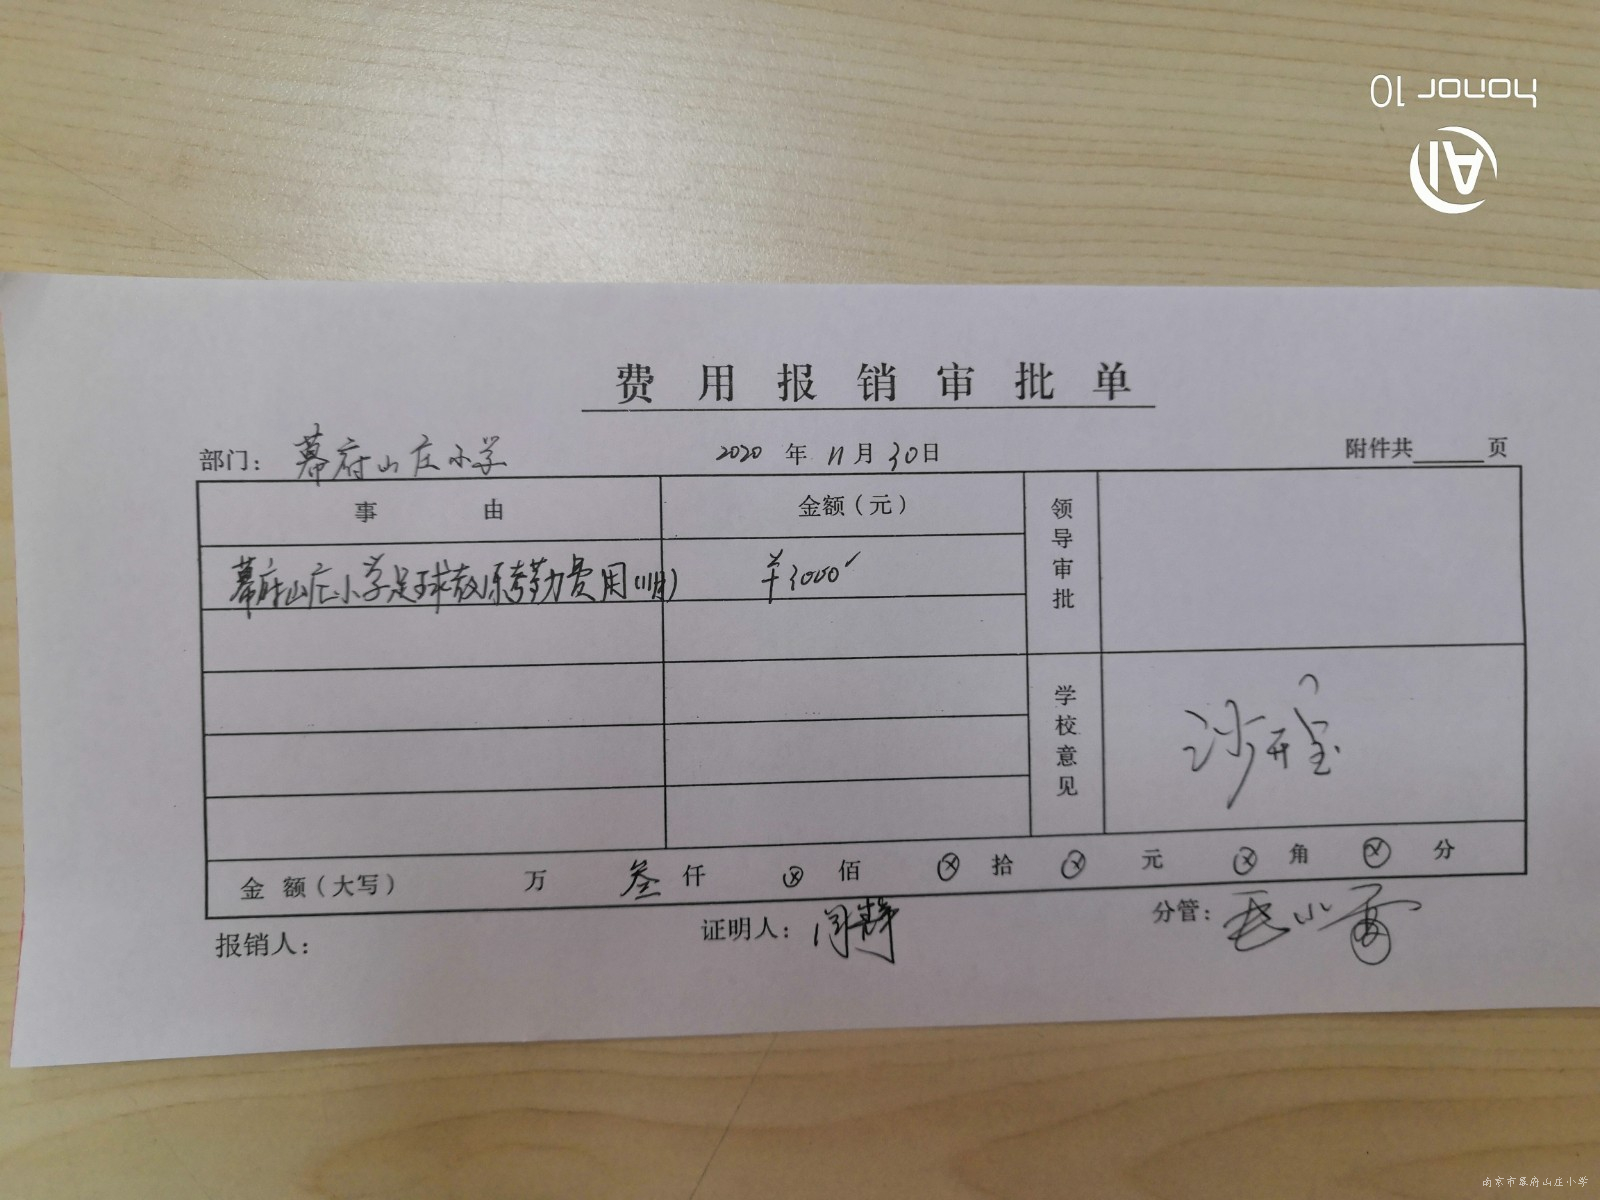 honor 10
AI
费用报销审批单
部门：幕府山庄小学 2020年11月30日 附件共______页
事由 金额（元） 领导审批
幕府山庄小学足球教练考勤费用（11月） ¥3000
学校意见 沙开宝
金额（大写） 万 叁仟 ⊗佰 ⊗拾 ⊗元 ⊗角 ⊗分
报销人： 证明人：闫静 分管：
南京市幕府山庄小学